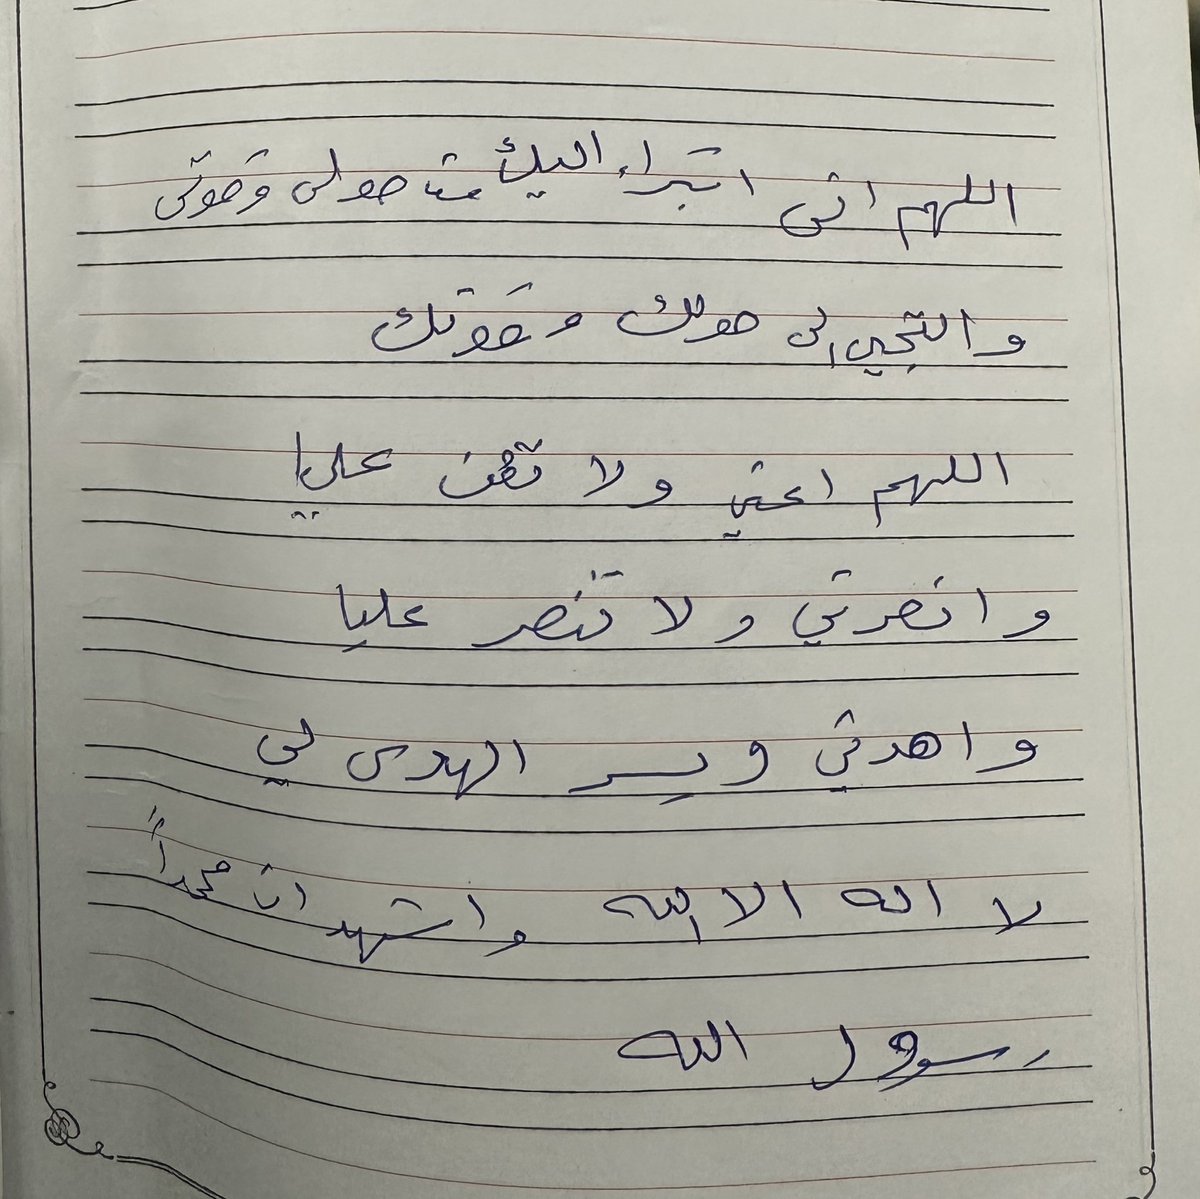 اللهم انى اتبراء اليك من حولى وقوتى
والتجيء الى حولك وقوتك
اللهم اعني ولا تعن عليا
وانصرني ولا تنصر عليا
واهدني ويسر الهدى لي
لا اله الا الله واشهد ان محمداً
رسول الله